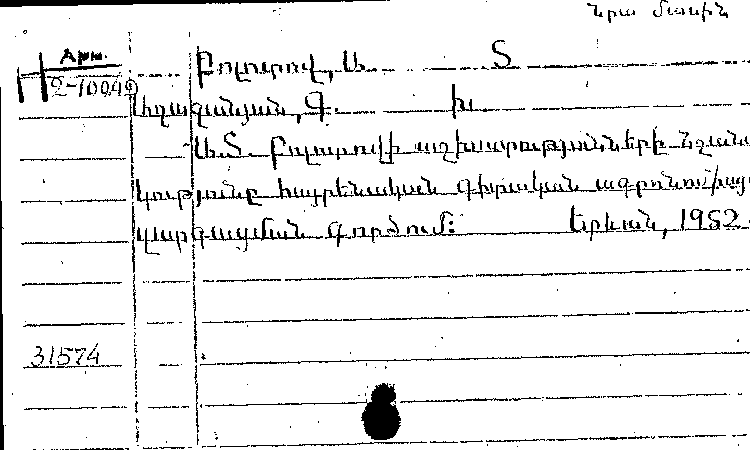 նրա մասին
Арм.
2-10049
Բոլոտով, Ա. Տ.
Աղաջանյան, Գ. Խ.
Ա.Տ. Բոլոտովի աշխատությունների նշանա
կությունը հայրենական գիտական ագրոնոմիայ
զարգացման գործում: Երևան, 1952.
31574